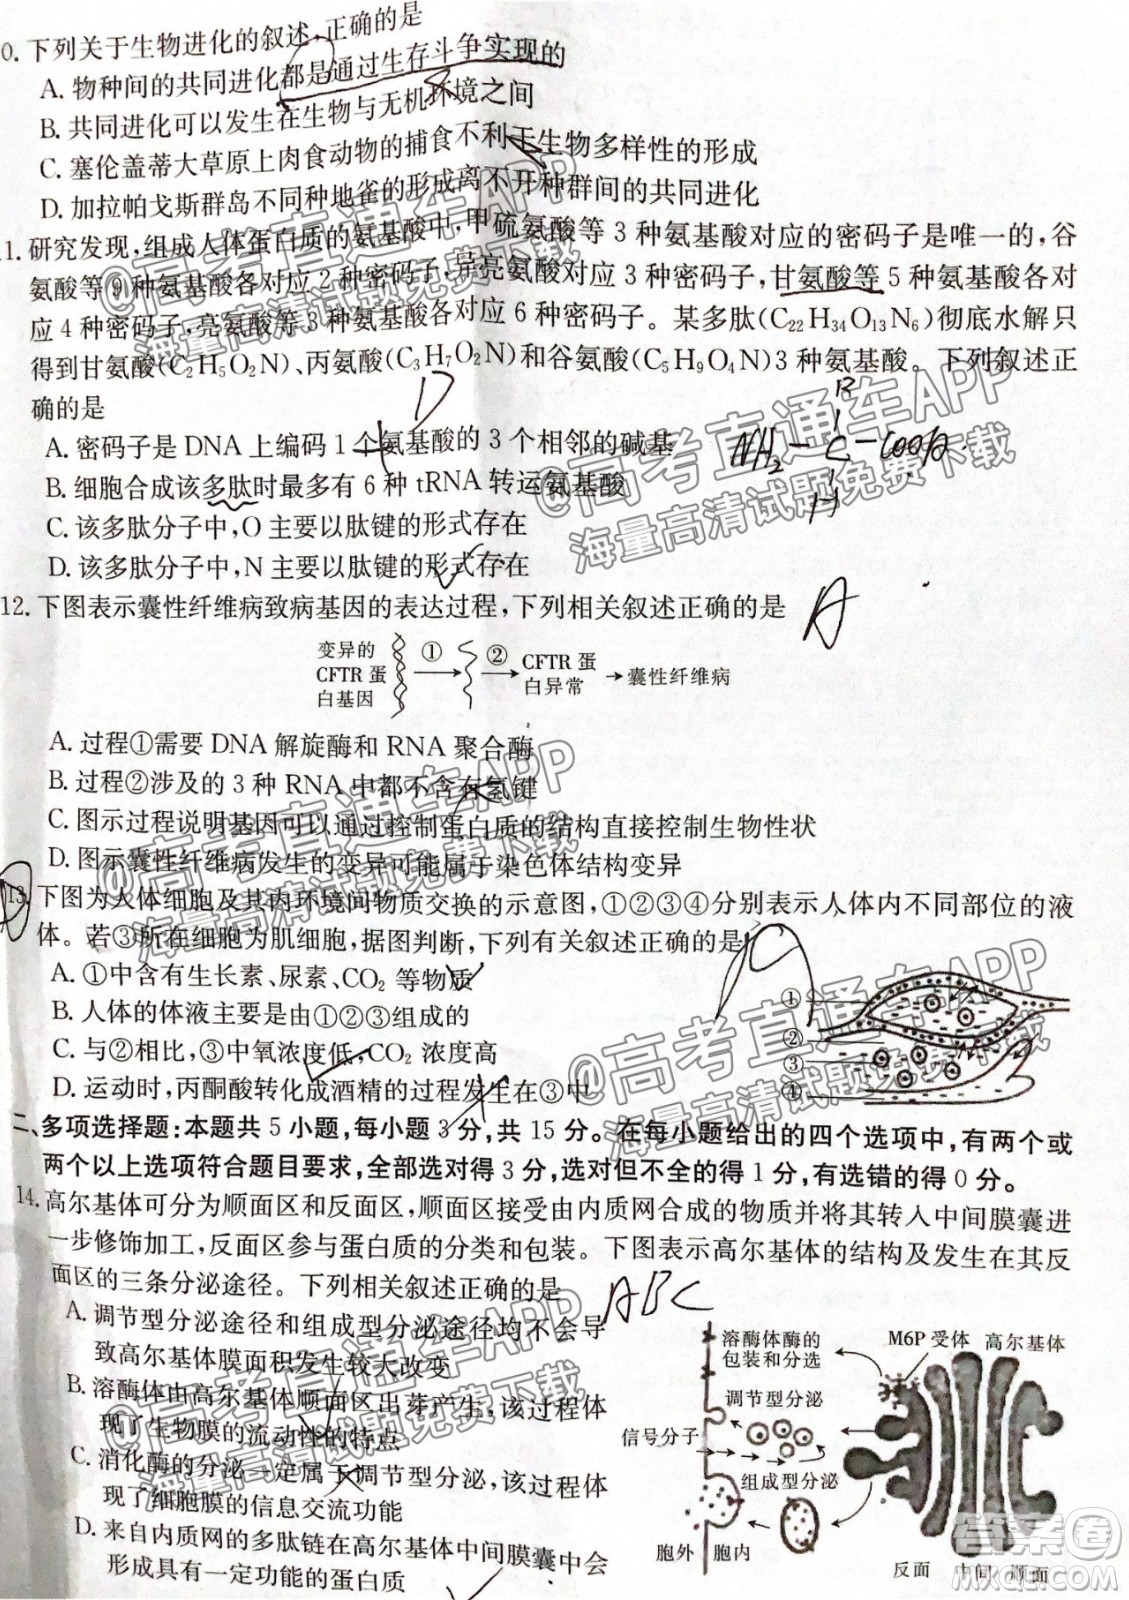 0. 下列关于生物进化的叙述,正确的是
A. 物种间的共同进化都是通过生存斗争实现的
B. 共同进化可以发生在生物与无机环境之间
C. 塞伦盖蒂大草原上肉食动物的捕食不利于生物多样性的形成
D. 加拉帕戈斯群岛不同种地雀的形成离不开种群间的共同进化
1. 研究发现,组成人体蛋白质的氨基酸中,甲硫氨酸等 3 种氨基酸对应的密码子是唯一的,谷
氨酸等9种氨基酸各对应2种密码子,异亮氨酸对应 3 种密码子,甘氨酸等 5 种氨基酸各对
应 4 种密码子,亮氨酸等 3 种氨基酸各对应 6 种密码子。某多肽(C22H34O13N6)彻底水解只
得到甘氨酸(C2H5O2N)、丙氨酸(C3H7O2N)和谷氨酸(C5H9O4N)3 种氨基酸。下列叙述正
确的是
D
A. 密码子是 DNA 上编码 1 个氨基酸的 3 个相邻的碱基
B. 细胞合成该多肽时最多有 6 种 tRNA 转运氨基酸
C. 该多肽分子中,O 主要以肽键的形式存在
D. 该多肽分子中,N 主要以肽键的形式存在
R
NH2-C-COOH
H
12. 下图表示囊性纤维病致病基因的表达过程,下列相关叙述正确的是
A
变异的
CFTR 蛋
白基因
①
②
CFTR 蛋
白异常
囊性纤维病
A. 过程①需要 DNA 解旋酶和 RNA 聚合酶
B. 过程②涉及的 3 种 RNA 中都不含有氢键
C. 图示过程说明基因可以通过控制蛋白质的结构直接控制生物性状
D. 图示囊性纤维病发生的变异可能属于染色体结构变异
13. 下图为人体细胞及其内环境间物质交换的示意图,①②③④分别表示人体内不同部位的液
体。若③所在细胞为肌细胞,据图判断,下列有关叙述正确的是
A. ①中含有生长素、尿素、CO2 等物质
B. 人体的体液主要是由①②③组成的
C. 与②相比,③中氧浓度低,CO2 浓度高
D. 运动时,丙酮酸转化成酒精的过程发生在③中
①
②
③
④
二、多项选择题:本题共 5 小题,每小题 3 分,共 15 分。在每小题给出的四个选项中,有两个或
两个以上选项符合题目要求,全部选对得 3 分,选对但不全的得 1 分,有选错的得 0 分。
14. 高尔基体可分为顺面区和反面区,顺面区接受由内质网合成的物质并将其转入中间膜囊进
一步修饰加工,反面区参与蛋白质的分类和包装。下图表示高尔基体的结构及发生在其反
面区的三条分泌途径。下列相关叙述正确的是
ABC
A. 调节型分泌途径和组成型分泌途径均不会导
致高尔基体膜面积发生较大改变
B. 溶酶体由高尔基体顺面区出芽产生,该过程体
现了生物膜的流动性的特点
C. 消化酶的分泌一定属于调节型分泌,该过程体
现了细胞膜的信息交流功能
D. 来自内质网的多肽链在高尔基体中间膜囊中会
形成具有一定功能的蛋白质
溶酶体酶的
包装和分选
M6P 受体
高尔基体
调节型分泌
信号分子
组成型分泌
胞外
胞内
反面
中间
顺面
@高考直通车APP
海量高清试题免费下载
@高考直通车APP
海量高清试题免费下载
@高考直通车APP
海量高清试题免费下载
@高考直通车APP
海量高清试题免费下载
@高考直通车APP
海量高清试题免费下载
答案圈
MXQE.COM